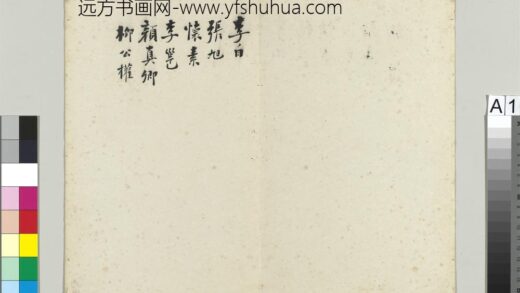 远方书画网-www.yfshuhua.com
李白
張旭
懷素
李邕
顏真卿
柳公權
A 1